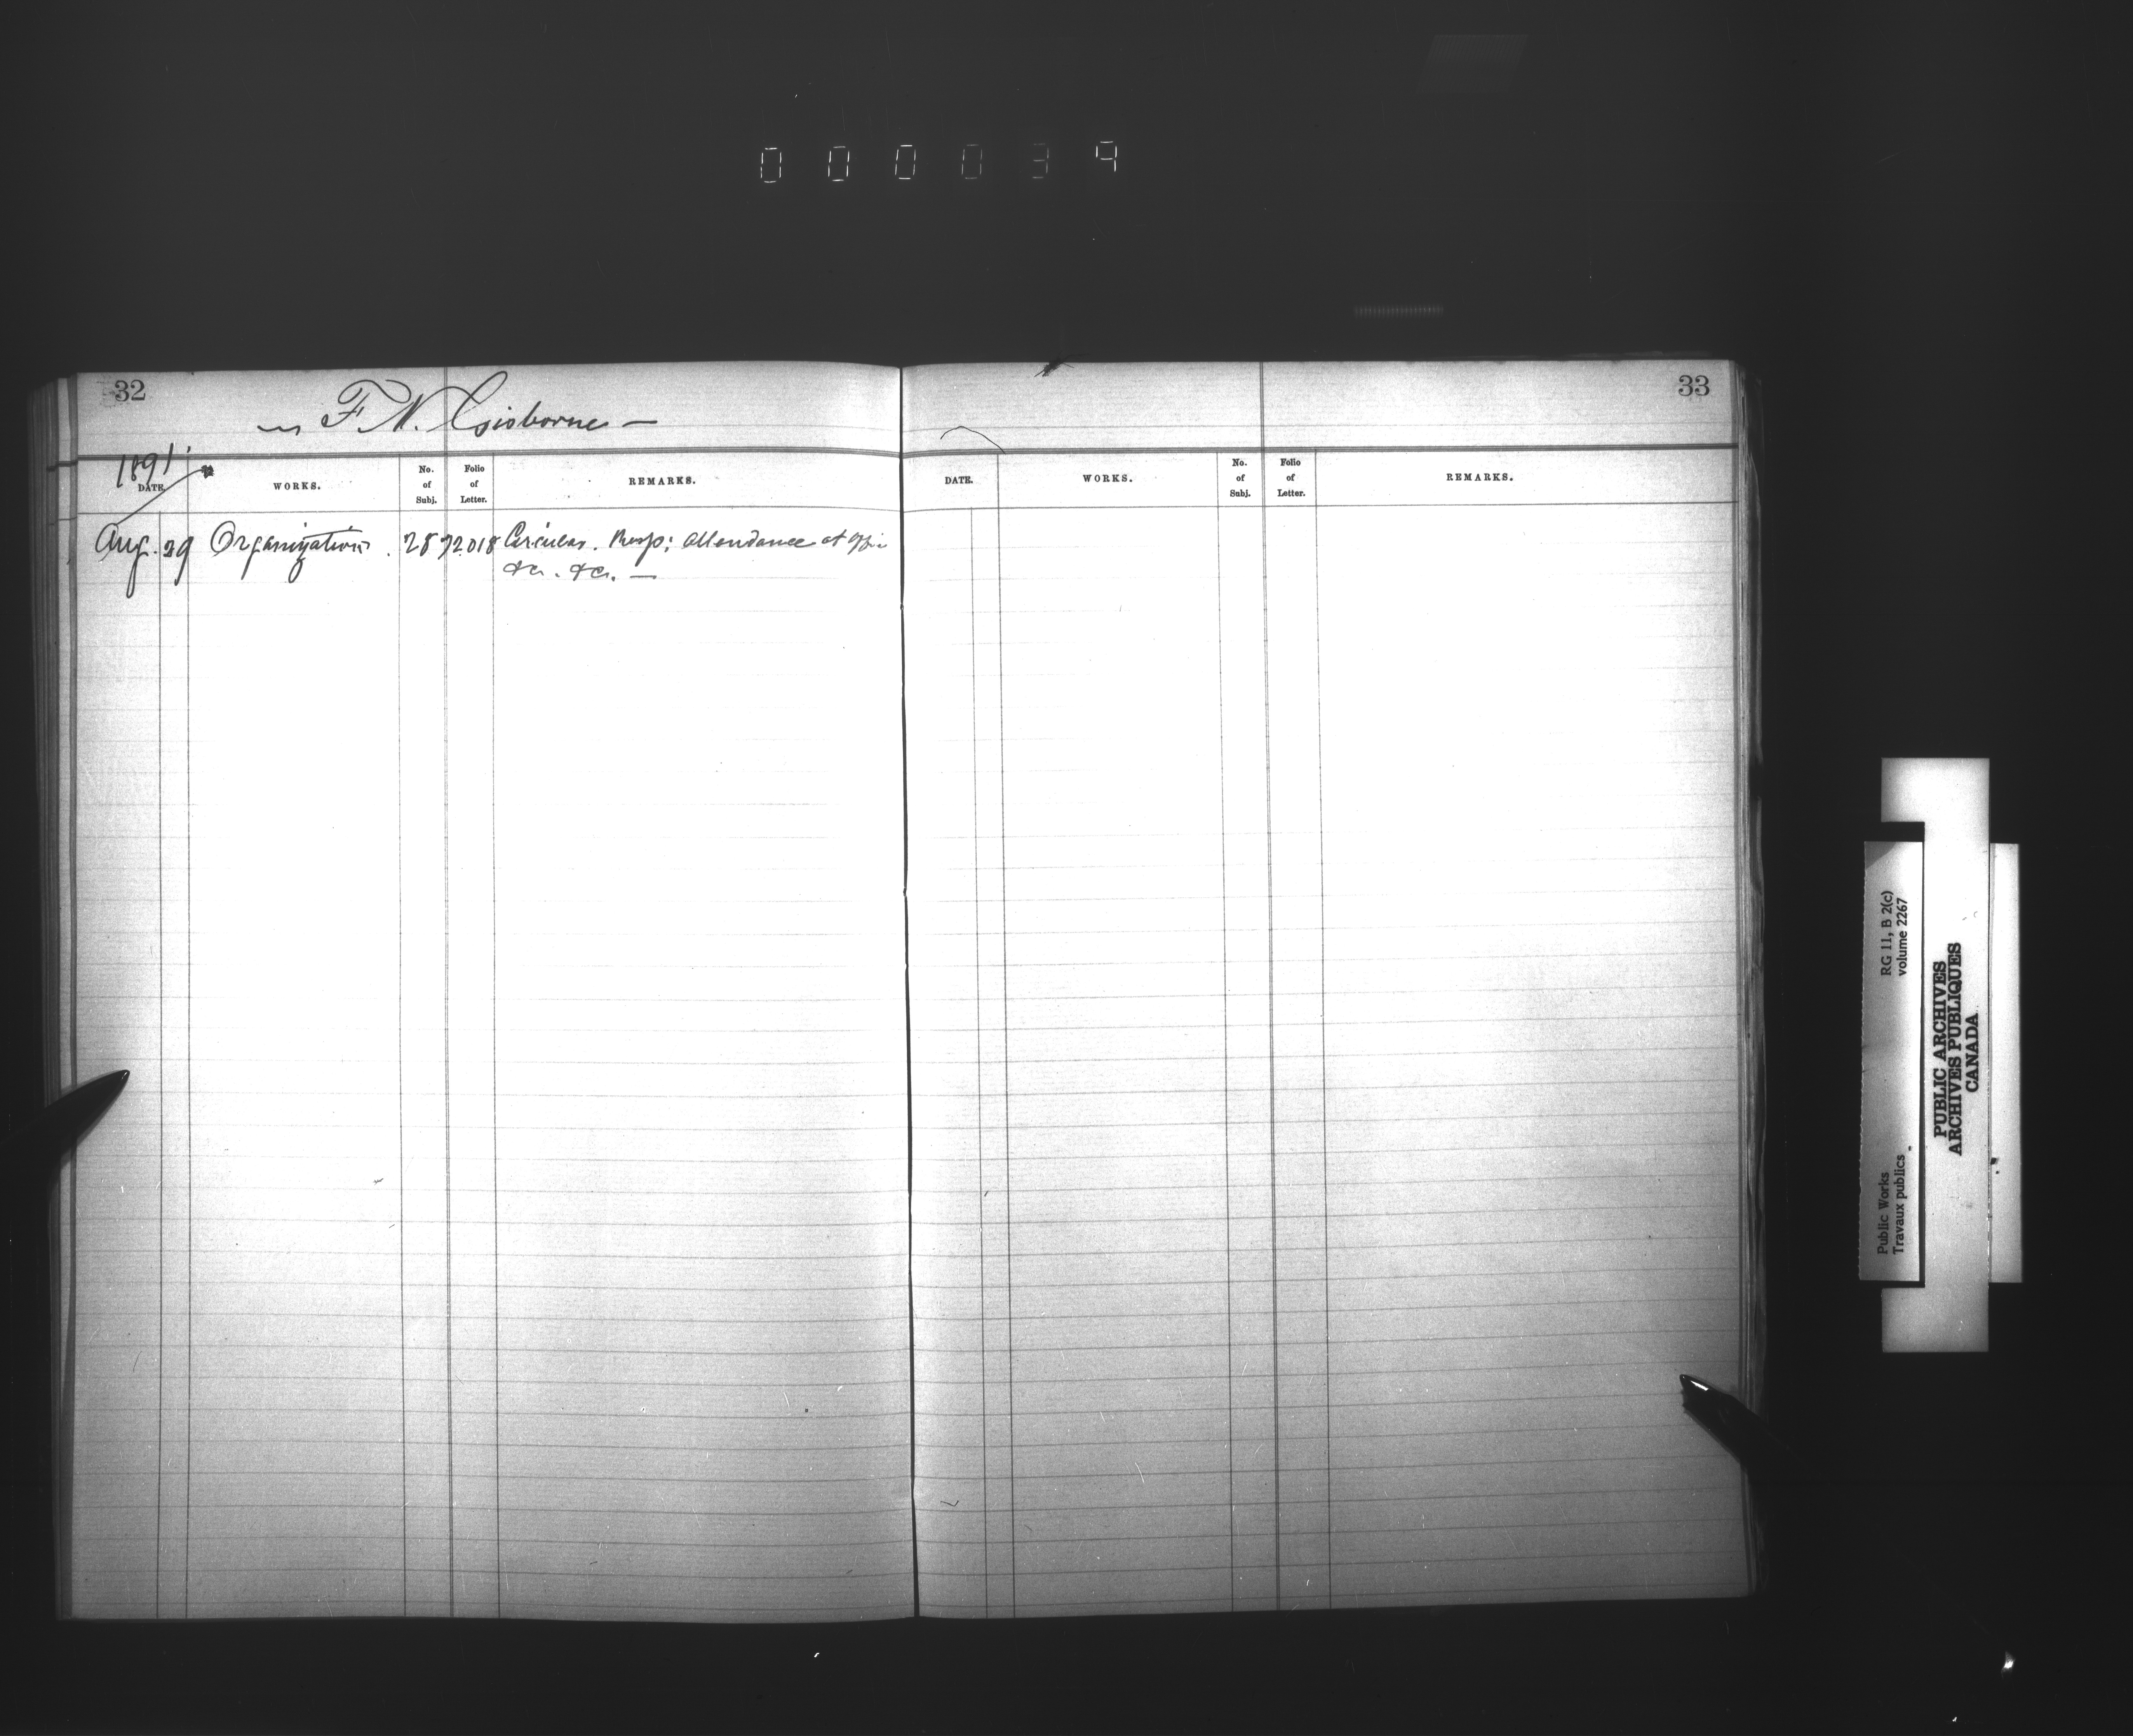 000039
32
— F. N. Gisborne —
1891
DATE. WORKS. No. of Subj. Folio of Letter. REMARKS.
Aug. 29 Organization. 28 72018 Circular. Resp: attendance at office
&c. &c. —
33
DATE. WORKS. No. of Subj. Folio of Letter. REMARKS.
Public Works RG 11, B 2(c)
Travaux publics volume 2267
PUBLIC ARCHIVES
ARCHIVES PUBLIQUES
CANADA